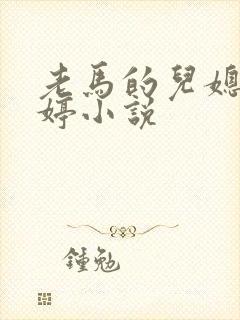 老馬的兒媳
婷小說
鍾勉